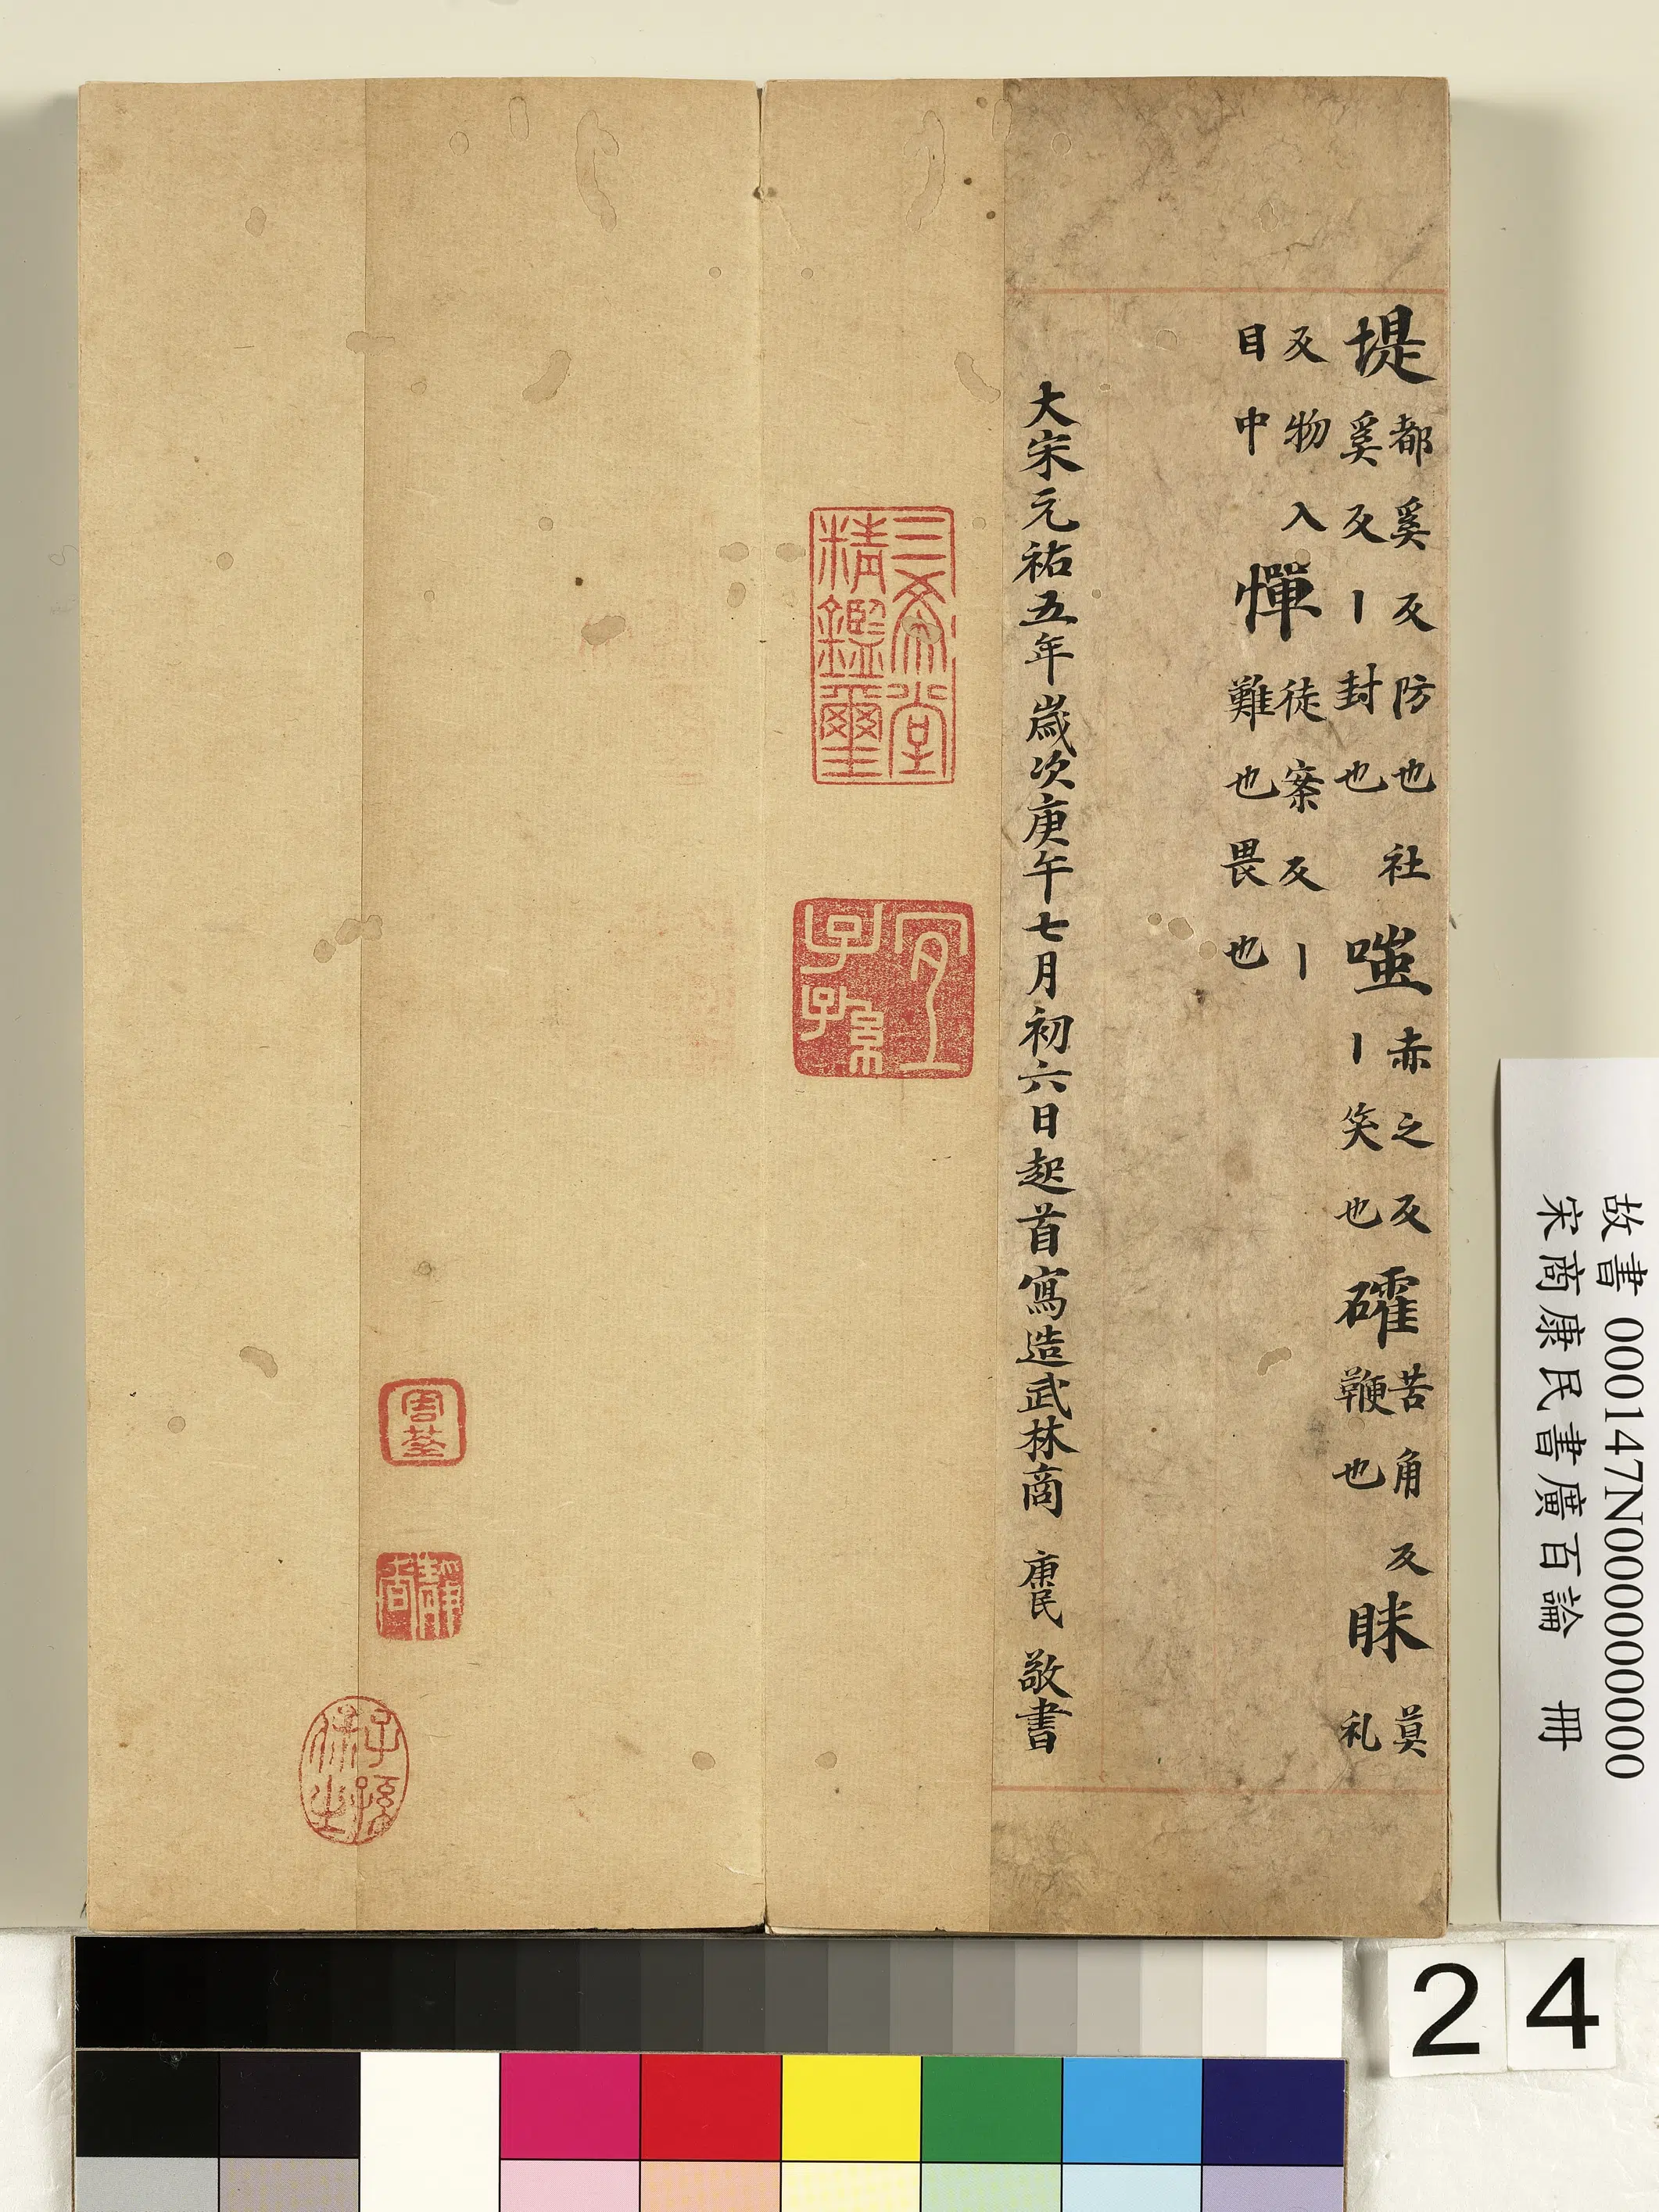 堤都奚反防也社奚反〡封也嗤赤之反〡笑也礭苦角反鞕也眯莫礼
反物入目中憚徒案反〡難也畏也
大宋元祐五年歲次庚午七月初六日起首寫造武林商 康民 敬書
三希堂
精鑑璽
宜
子孫
子孫
保之
故書 000147N000000000
宋商康民書廣百論 冊
24